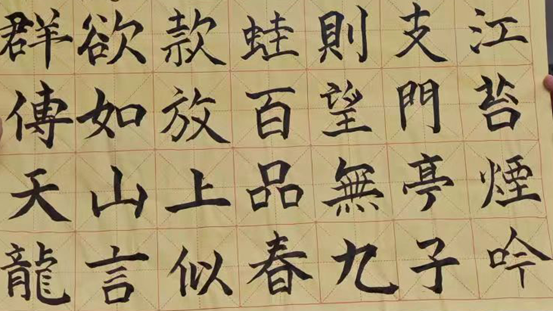 群欲款蛙則支江
傳如放百望門苔
天山上品無亭煙
龍言似春九子吟